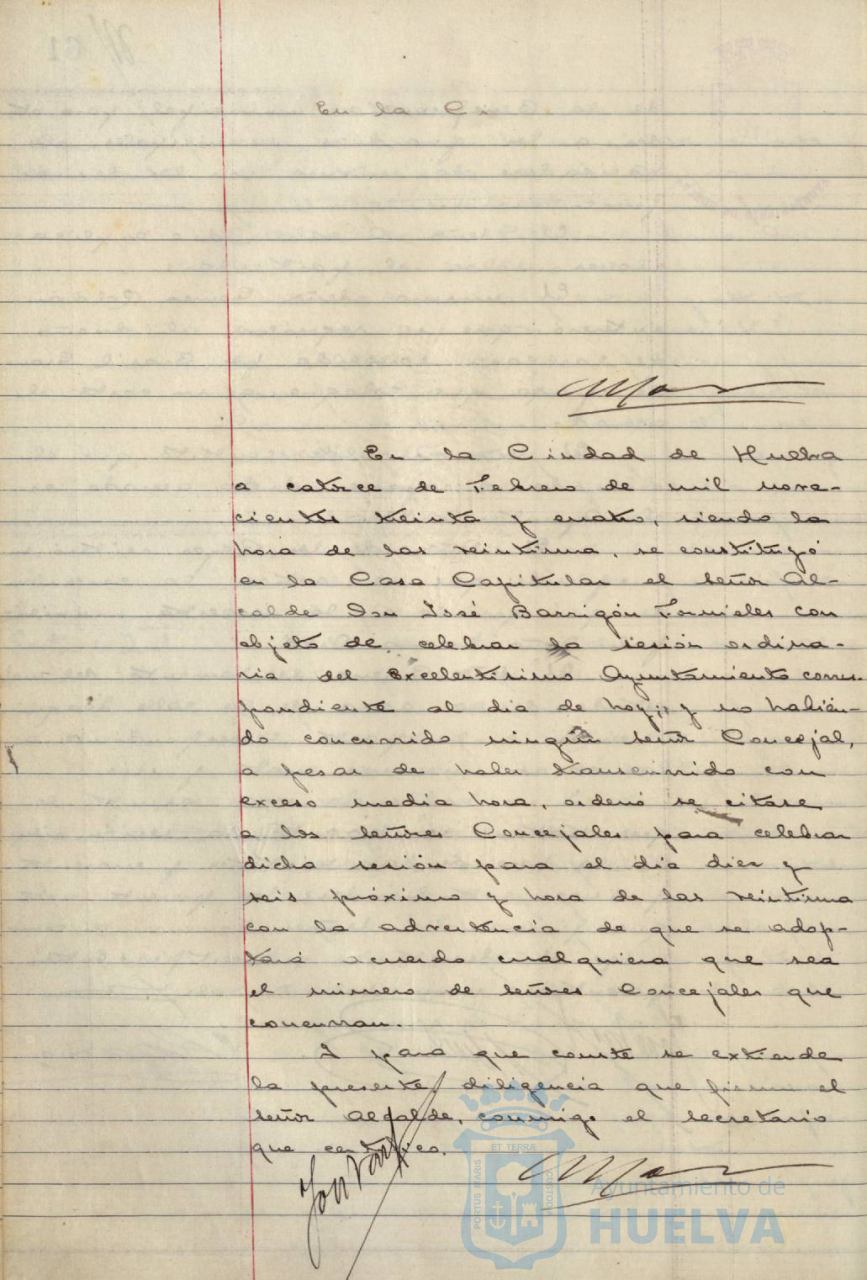 En la Ci
En la Ciudad de Huelva
a catorce de Febrero de mil nove-
cientos treinta y cuatro, siendo la
hora de las veintiuna, se constituyó
en la Casa Capitular el señor Al-
calde Don José Barrigón Fornieles con
objeto de celebrar la sesión ordina-
ria del Excelentísimo Ayuntamiento corres-
pondiente al día de hoy; y no habién-
do concurrido ningún señor Concejal,
a pesar de haber transcurrido con
exceso media hora, ordenó se citase
a los señores Concejales para celebrar
dicha sesión para el día diez y
seis próximo y hora de las veintiuna
con la advertencia de que se adop-
tará acuerdo cualquiera que sea
el número de señores Concejales que
concurran.
Y para que conste se extiende
la presente diligencia que firma el
señor Alcalde, conmigo el Secretario
que certifico.
PORTUS MARIS ET TERRÆ CUSTODIA
Ayuntamiento de
HUELVA